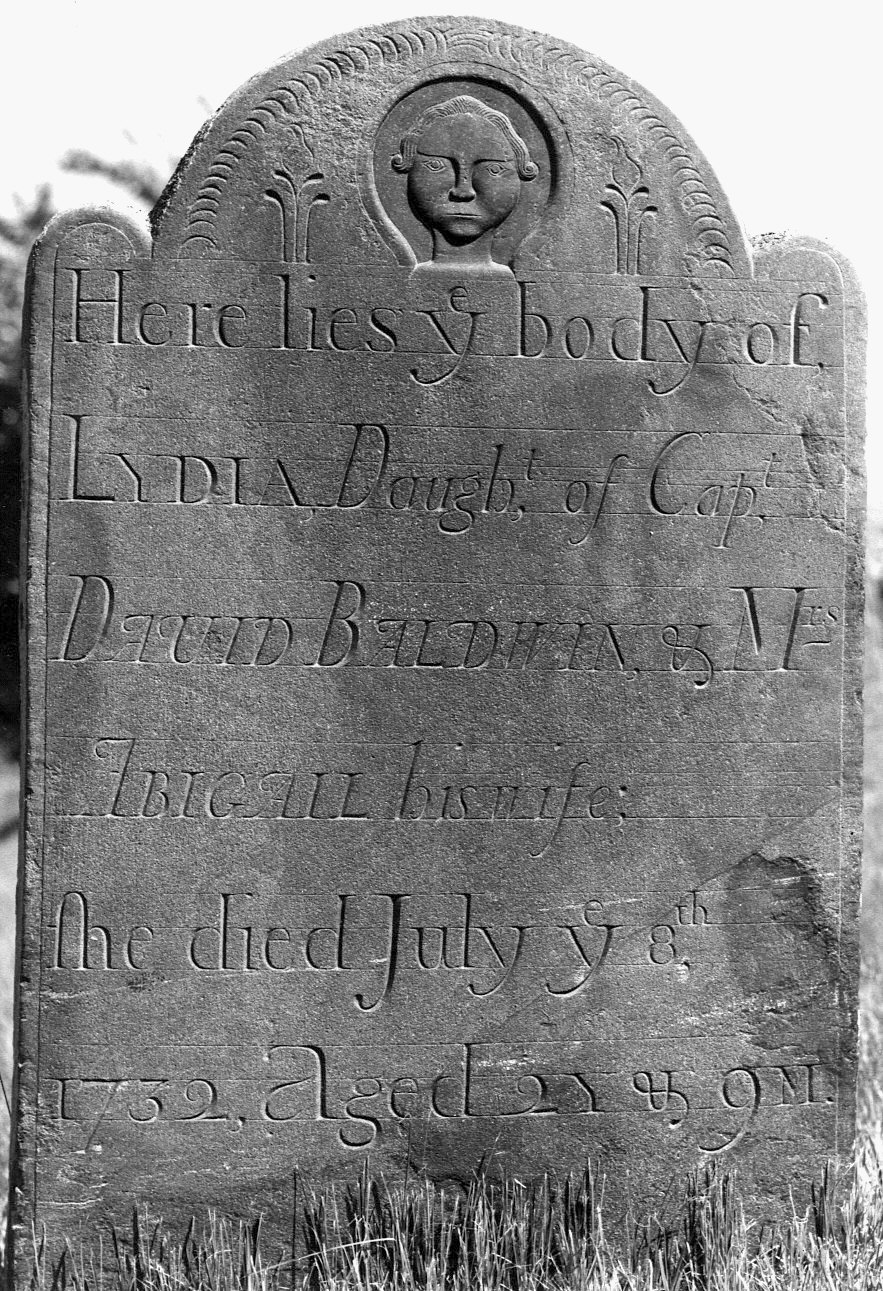 Here lies yͤ body of
LYDIA, Daugh.ᵗ of Cap.ᵗ
DAUID BALDWIN, & Mʳˢ
ABIGAIL his wife;
ſhe died July yͤ 8ᵗʰ
1732, Aged 2Y & 9M.